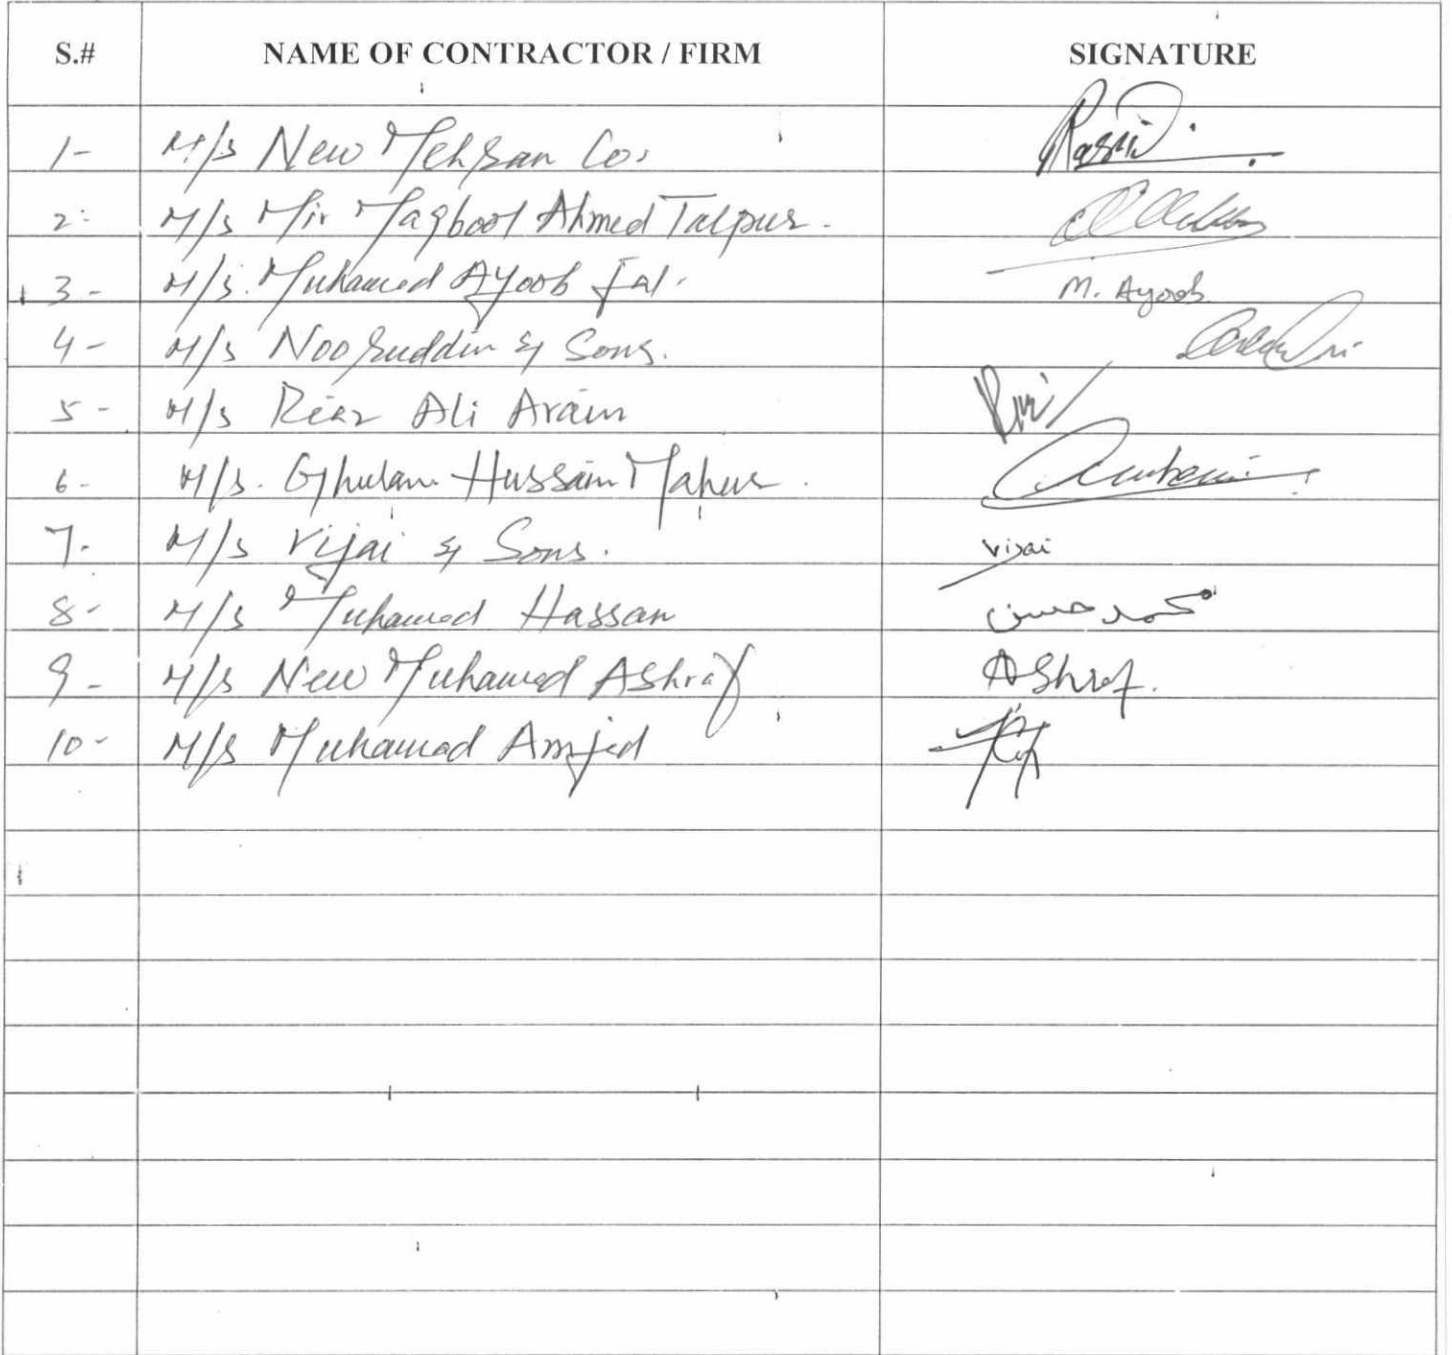 S.# NAME OF CONTRACTOR / FIRM SIGNATURE
1- M/s New Mehran Co.
2- M/s Mir Maqbool Ahmed Talpur.
3- M/s. Muhamed Ayoob Jal. M. Ayoob
4- M/s Nooruddin & Sons.
5- M/s Riaz Ali Arain
6- M/s. Ghulam Hussain Mahur.
7- M/s Vijai & Sons. Vijai
8- M/s Muhamed Hassan محمد حسن
9- M/s New Muhamed Ashraf Ashraf.
10- M/s Muhamad Amjed